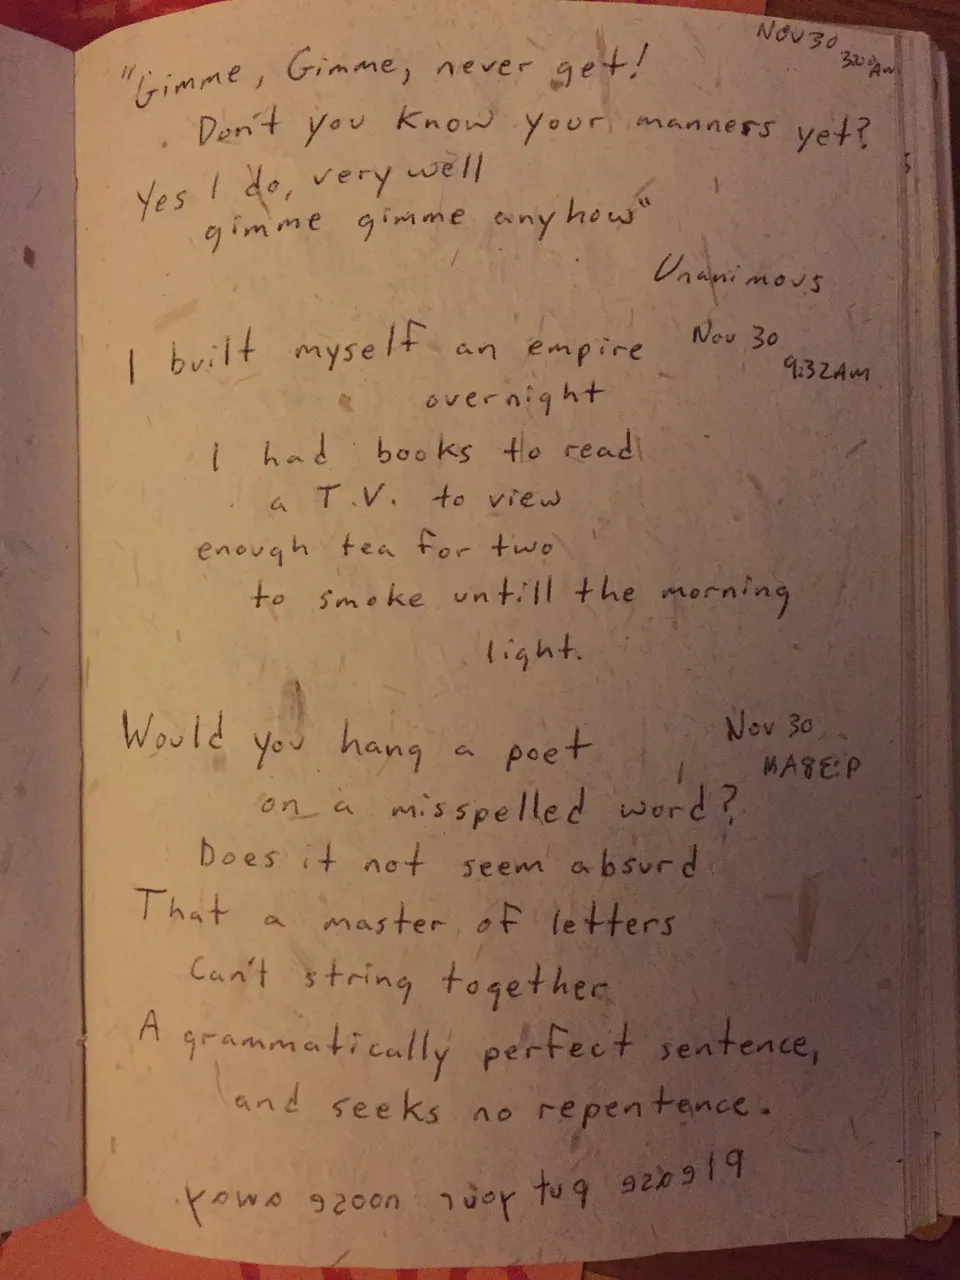 NOV 30
"Gimme, Gimme, never get!
Don't you know your manners yet?
Yes I do, very well
gimme gimme anyhow"
Unanimous
Nov 30
9:32AM
I built myself an empire
overnight
I had books to read
a T.V. to view
enough tea for two
to smoke untill the morning
light.
Nov 30
9:38AM
Would you hang a poet
on a misspelled word?
Does it not seem absurd
That a master of letters
Can't string together
A grammatically perfect sentence,
and seeks no repentence.
Please put your noose away